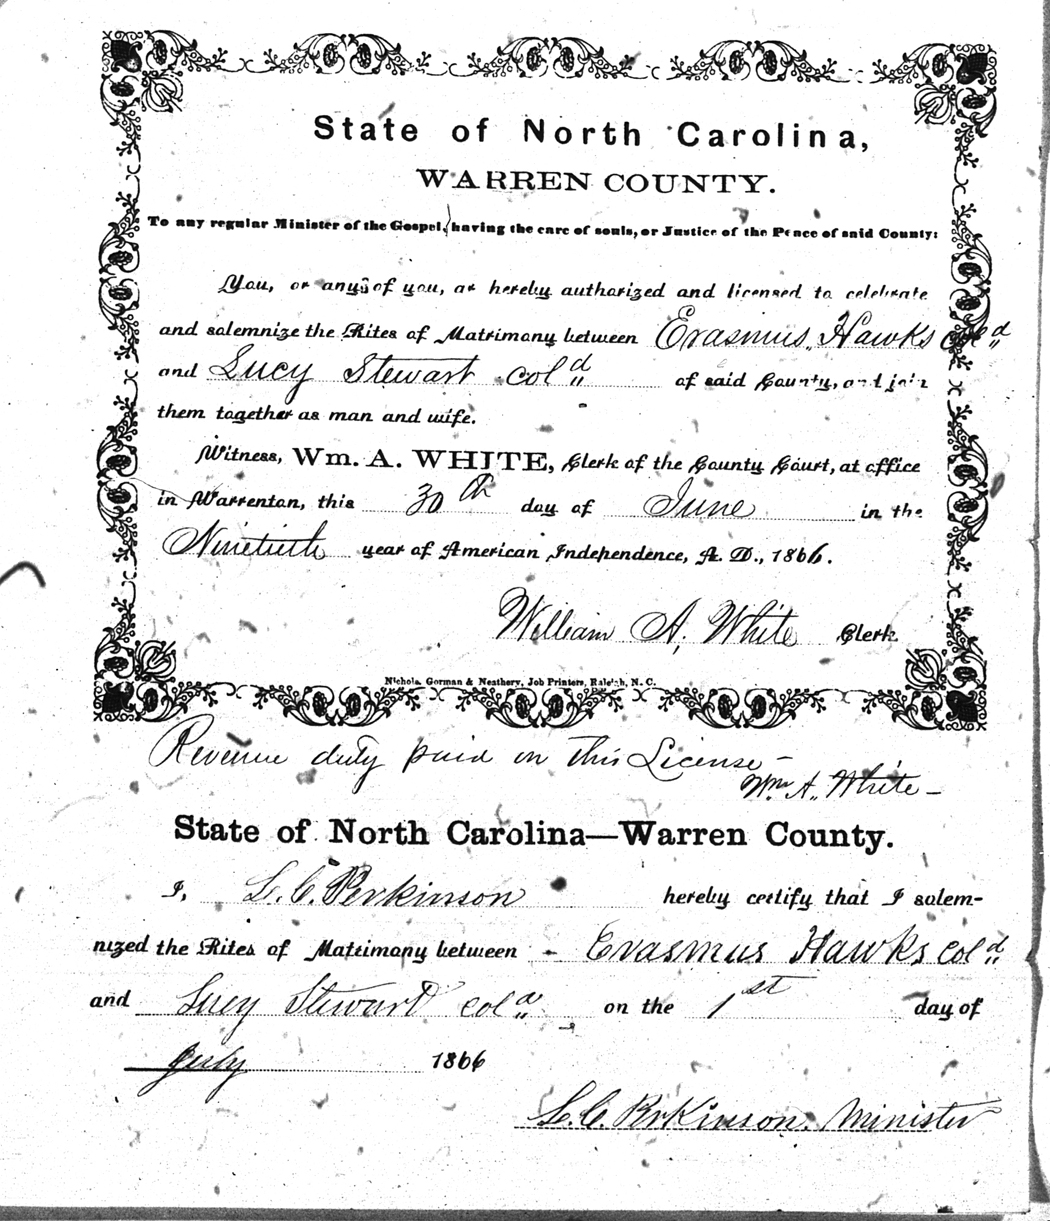 State of North Carolina,
WARREN COUNTY.
To any regular Minister of the Gospel, having the care of souls, or Justice of the Peace of said County:
You, or any of you, are hereby authorized and licensed to celebrate
and solemnize the Rites of Matrimony between Erasmus Hawks col'd
and Lucy Stewart col'd of said County, and join
them together as man and wife.
Witness, Wm. A. WHITE, Clerk of the County Court, at office
in Warrenton, this 30th day of June in the
Ninetieth year of American Independence, A. D., 1866.
William A. White Clerk
Nichols, Gorman & Neathery, Job Printers, Raleigh, N. C.
Revenue duty paid on this License—
Wm A. White—
State of North Carolina—Warren County.
I, L. C. Perkinson hereby certify that I solem-
nized the Rites of Matrimony between Erasmus Hawks col'd
and Lucy Stewart col'd on the 1st day of
July 1866
L. C. Perkinson. Minister